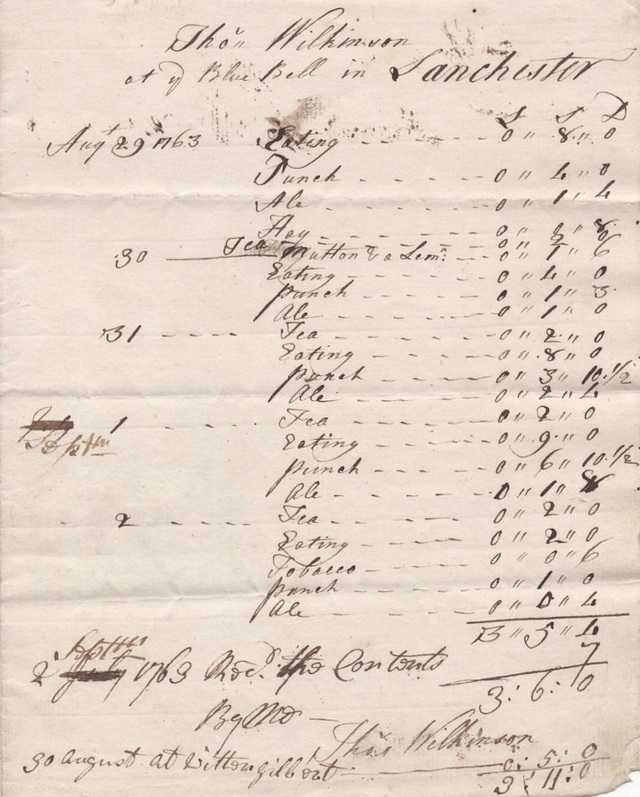 Thos Wilkinson
at ye Blue Bell in Lanchester
£ S D
Augt 29 1763 Eating - - - - 0 " 8 " 0
Punch - - - - 0 " 4 " 0
Ale - - - - 0 " 1 " 4
Hay - - - - 0 " 8
30 Tea - - - - 0 " 2 " 0
Mutton & a Lem: 0 " 1 " 6
Eating - - - - 0 " 4 " 0
Punch - - - - 0 " 1 " 3
Ale - - - - 0 " 1 " 0
31 - - - - Tea - - - - 0 " 2 " 0
Eating - - - - 0 " 8 " 0
Punch - - - - 0 " 3 " 10 1/2
Ale - - - - 0 " 2 " 4
Septm 1 - - - - Tea - - - - 0 " 2 " 0
Eating - - - - 0 " 9 " 0
Punch - - - - 0 " 6 " 10 1/2
Ale - - - - 0 " 1 " 8
2 - - - - Tea - - - - 0 " 2 " 0
Eating - - - - 0 " 2 " 0
Tobacco - - - - 0 " 0 " 6
Punch - - - - 0 " 1 " 0
Ale - - - - 0 " 0 " 4
3 " 5 " 4
7
2 Septm 1763 Recd. the Contents
3 : 6 : 0
By Me -
Thos Wilkinson
30 August at Wittongilbert 0 : 5 : 0
3 : 11 : 0